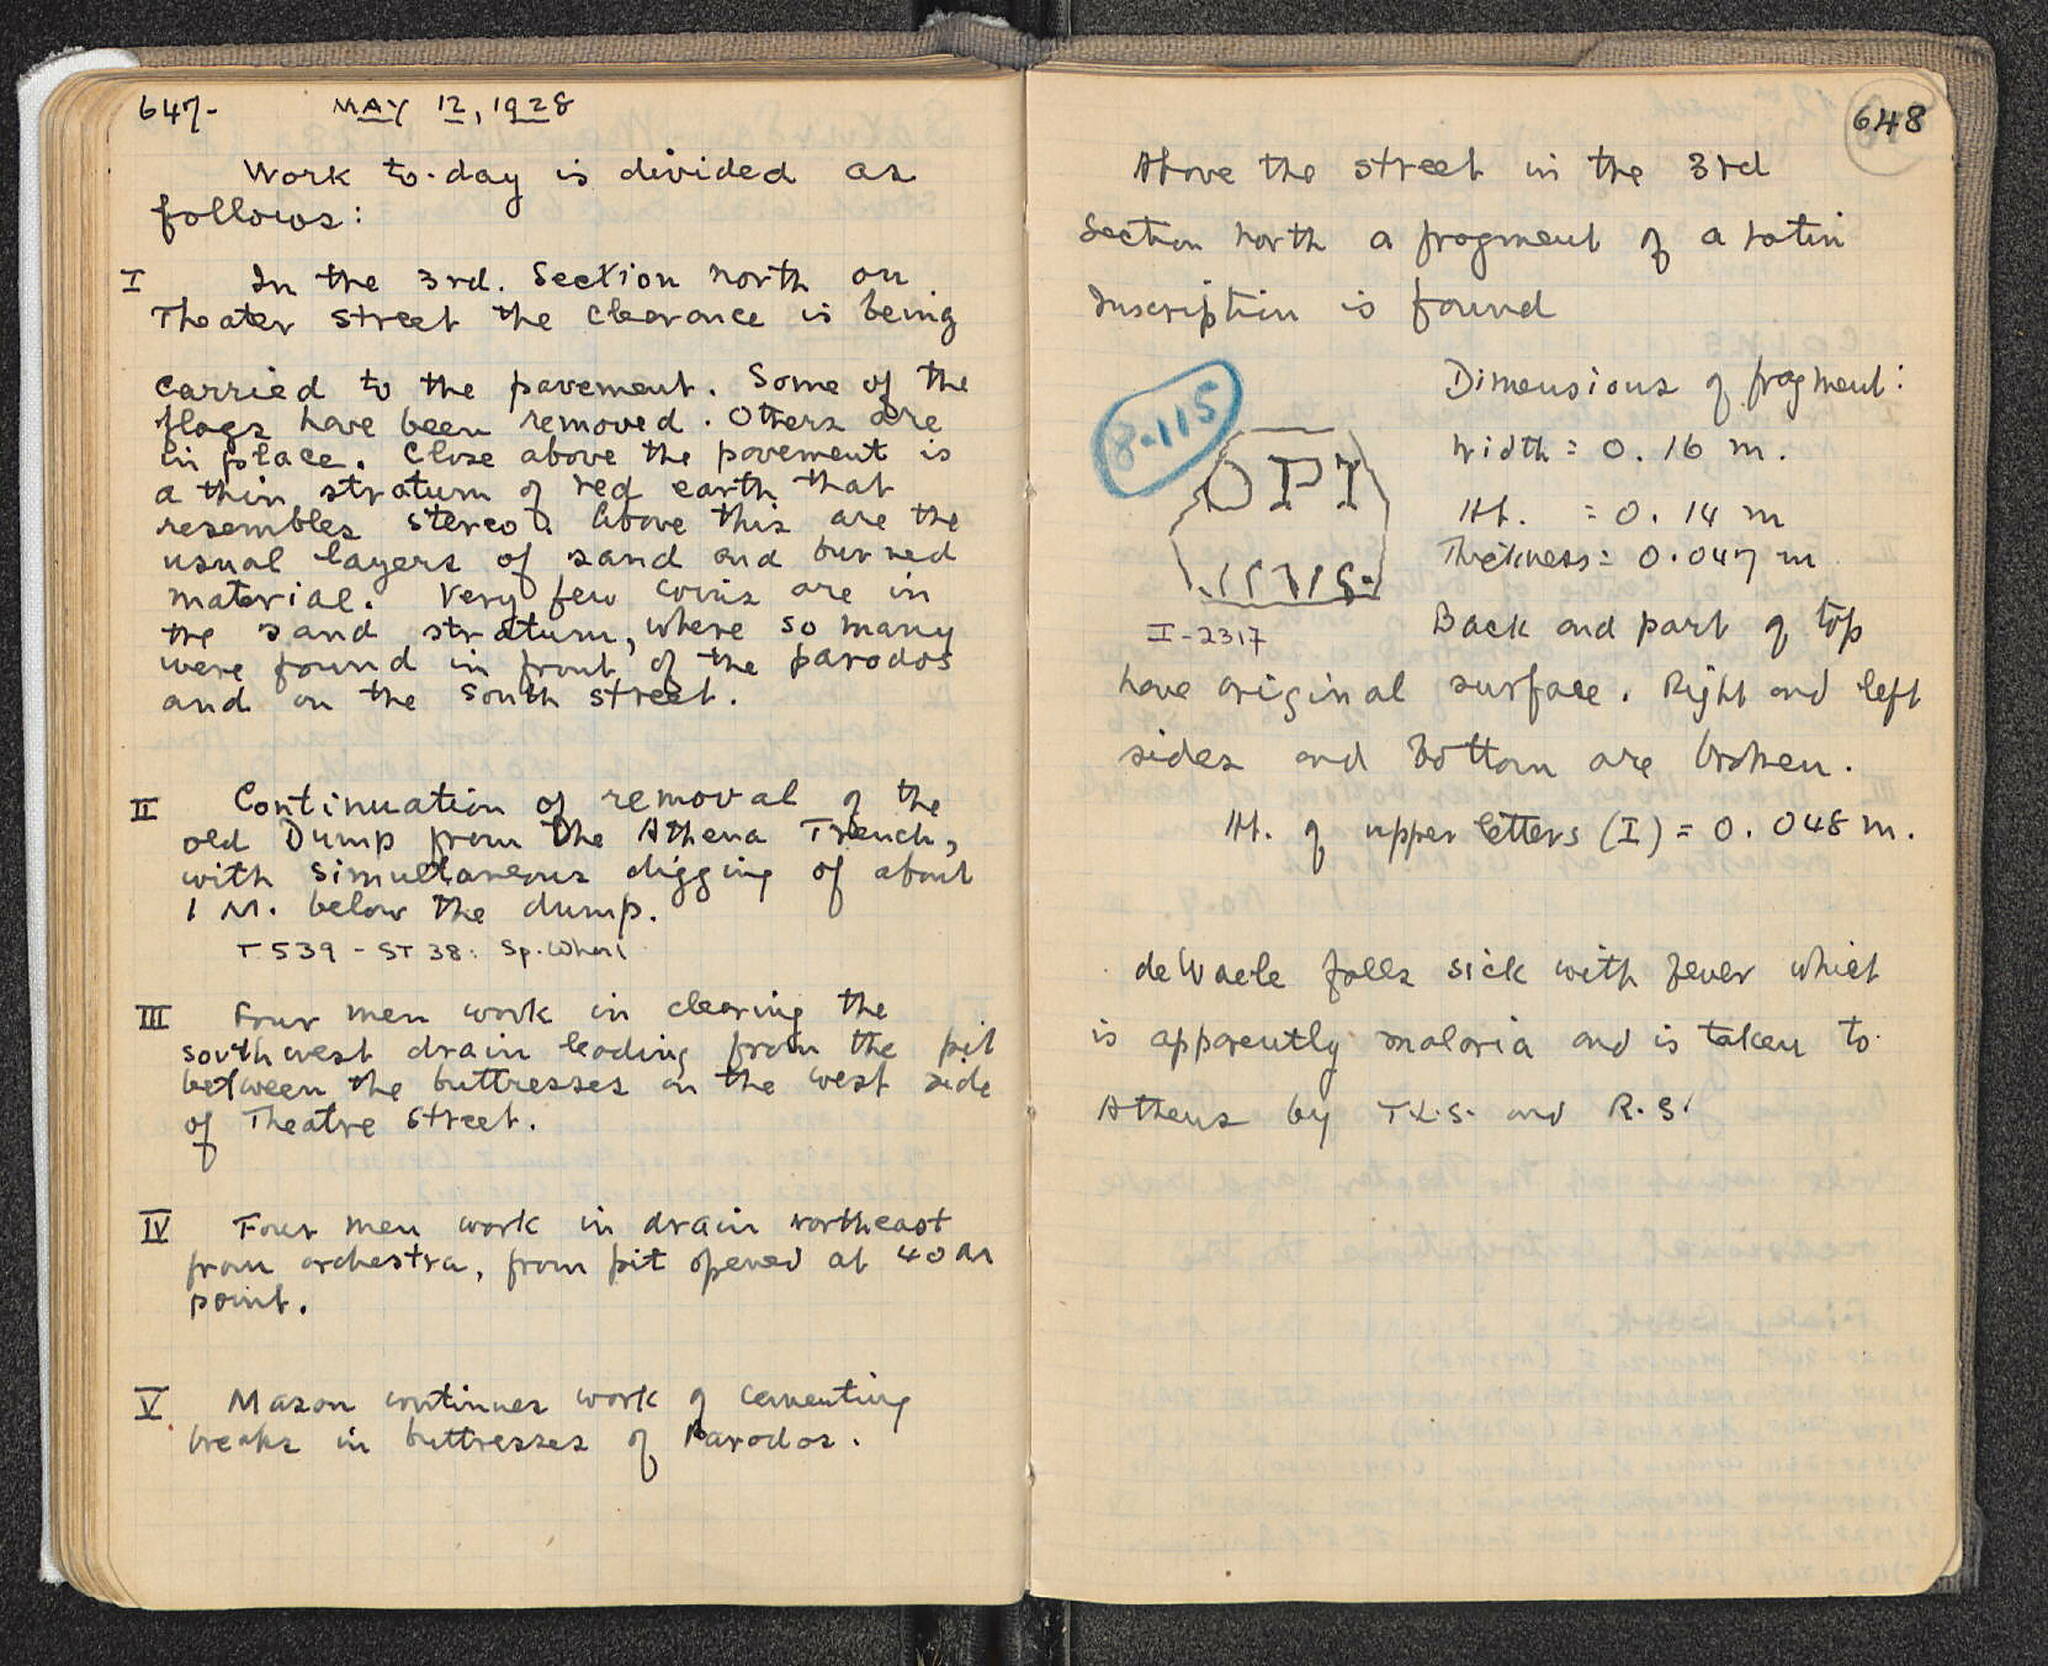 647-
MAY 12, 1928
Work to-day is divided as
follows:
I In the 3rd. Section north on
Theater street the clearance is being
carried to the pavement. Some of the
flags have been removed. Others are
in place. Close above the pavement is
a thin stratum of red earth that
resembles stereo. Above this are the
usual layers of sand and burned
material. Very few coins are in
the sand stratum, where so many
were found in front of the parodos
and on the south street.
II Continuation of removal of the
old Dump from the Athena Trench,
with simultaneous digging of about
1 M. below the dump.
T 539 - ST 38: Sp. Whorl
III Four men work in clearing the
southwest drain leading from the pit
between the buttresses on the west side
of Theatre Street.
IV Four men work in drain northeast
from orchestra, from pit opened at 40 M
point.
V Mason continues work of cementing
breaks in buttresses of Parodos.
648
Above the street in the 3rd
Section north a fragment of a Latin
Inscription is found
8-115
OPI
Dimensions of fragment:
Width = 0.16 m.
Ht. = 0.14 m
Thickness = 0.047 m
I-2317
Back and part of top
have original surface. Right and left
sides and Bottom are broken.
Ht. of upper letters (I) = 0.048 m.
deWaele falls sick with fever which
is apparently malaria and is taken to
Athens by T.L.S. and R.S.